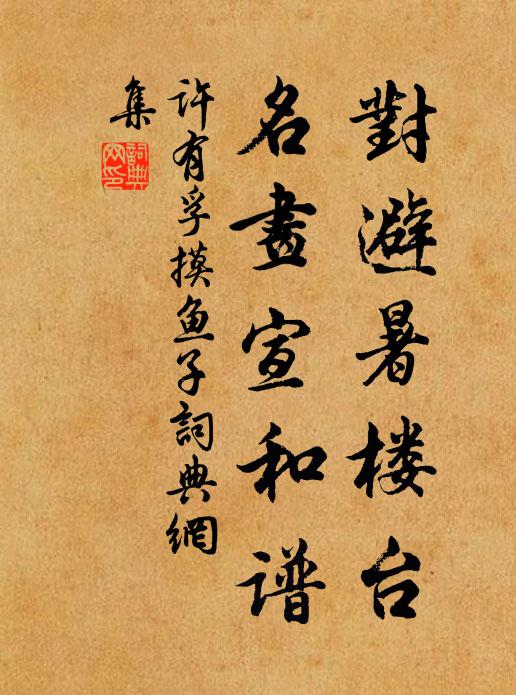 對避暑楼台
名畫宣和谱
许有孚摸鱼子詞典網
集
詞典
网印